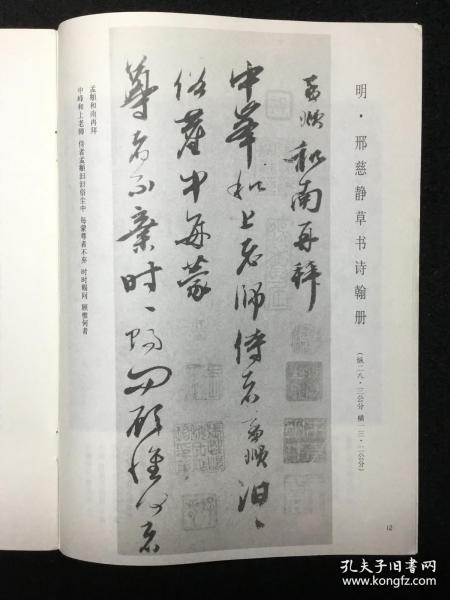 明·邢慈静草书诗翰册
（纵二八·三公分 横一三·二公分）
孟頫和南再拜
中峰和上老师侍者孟頫汩汩
俗尘中每蒙
尊者不弃时时赐问顾惟何者
孟頫和南再拜
中峰和上老师 侍者孟頫汩汩俗尘中 每蒙尊者不弃 时时赐问 顾惟何者
12
孔夫子旧书网
www.kongfz.com